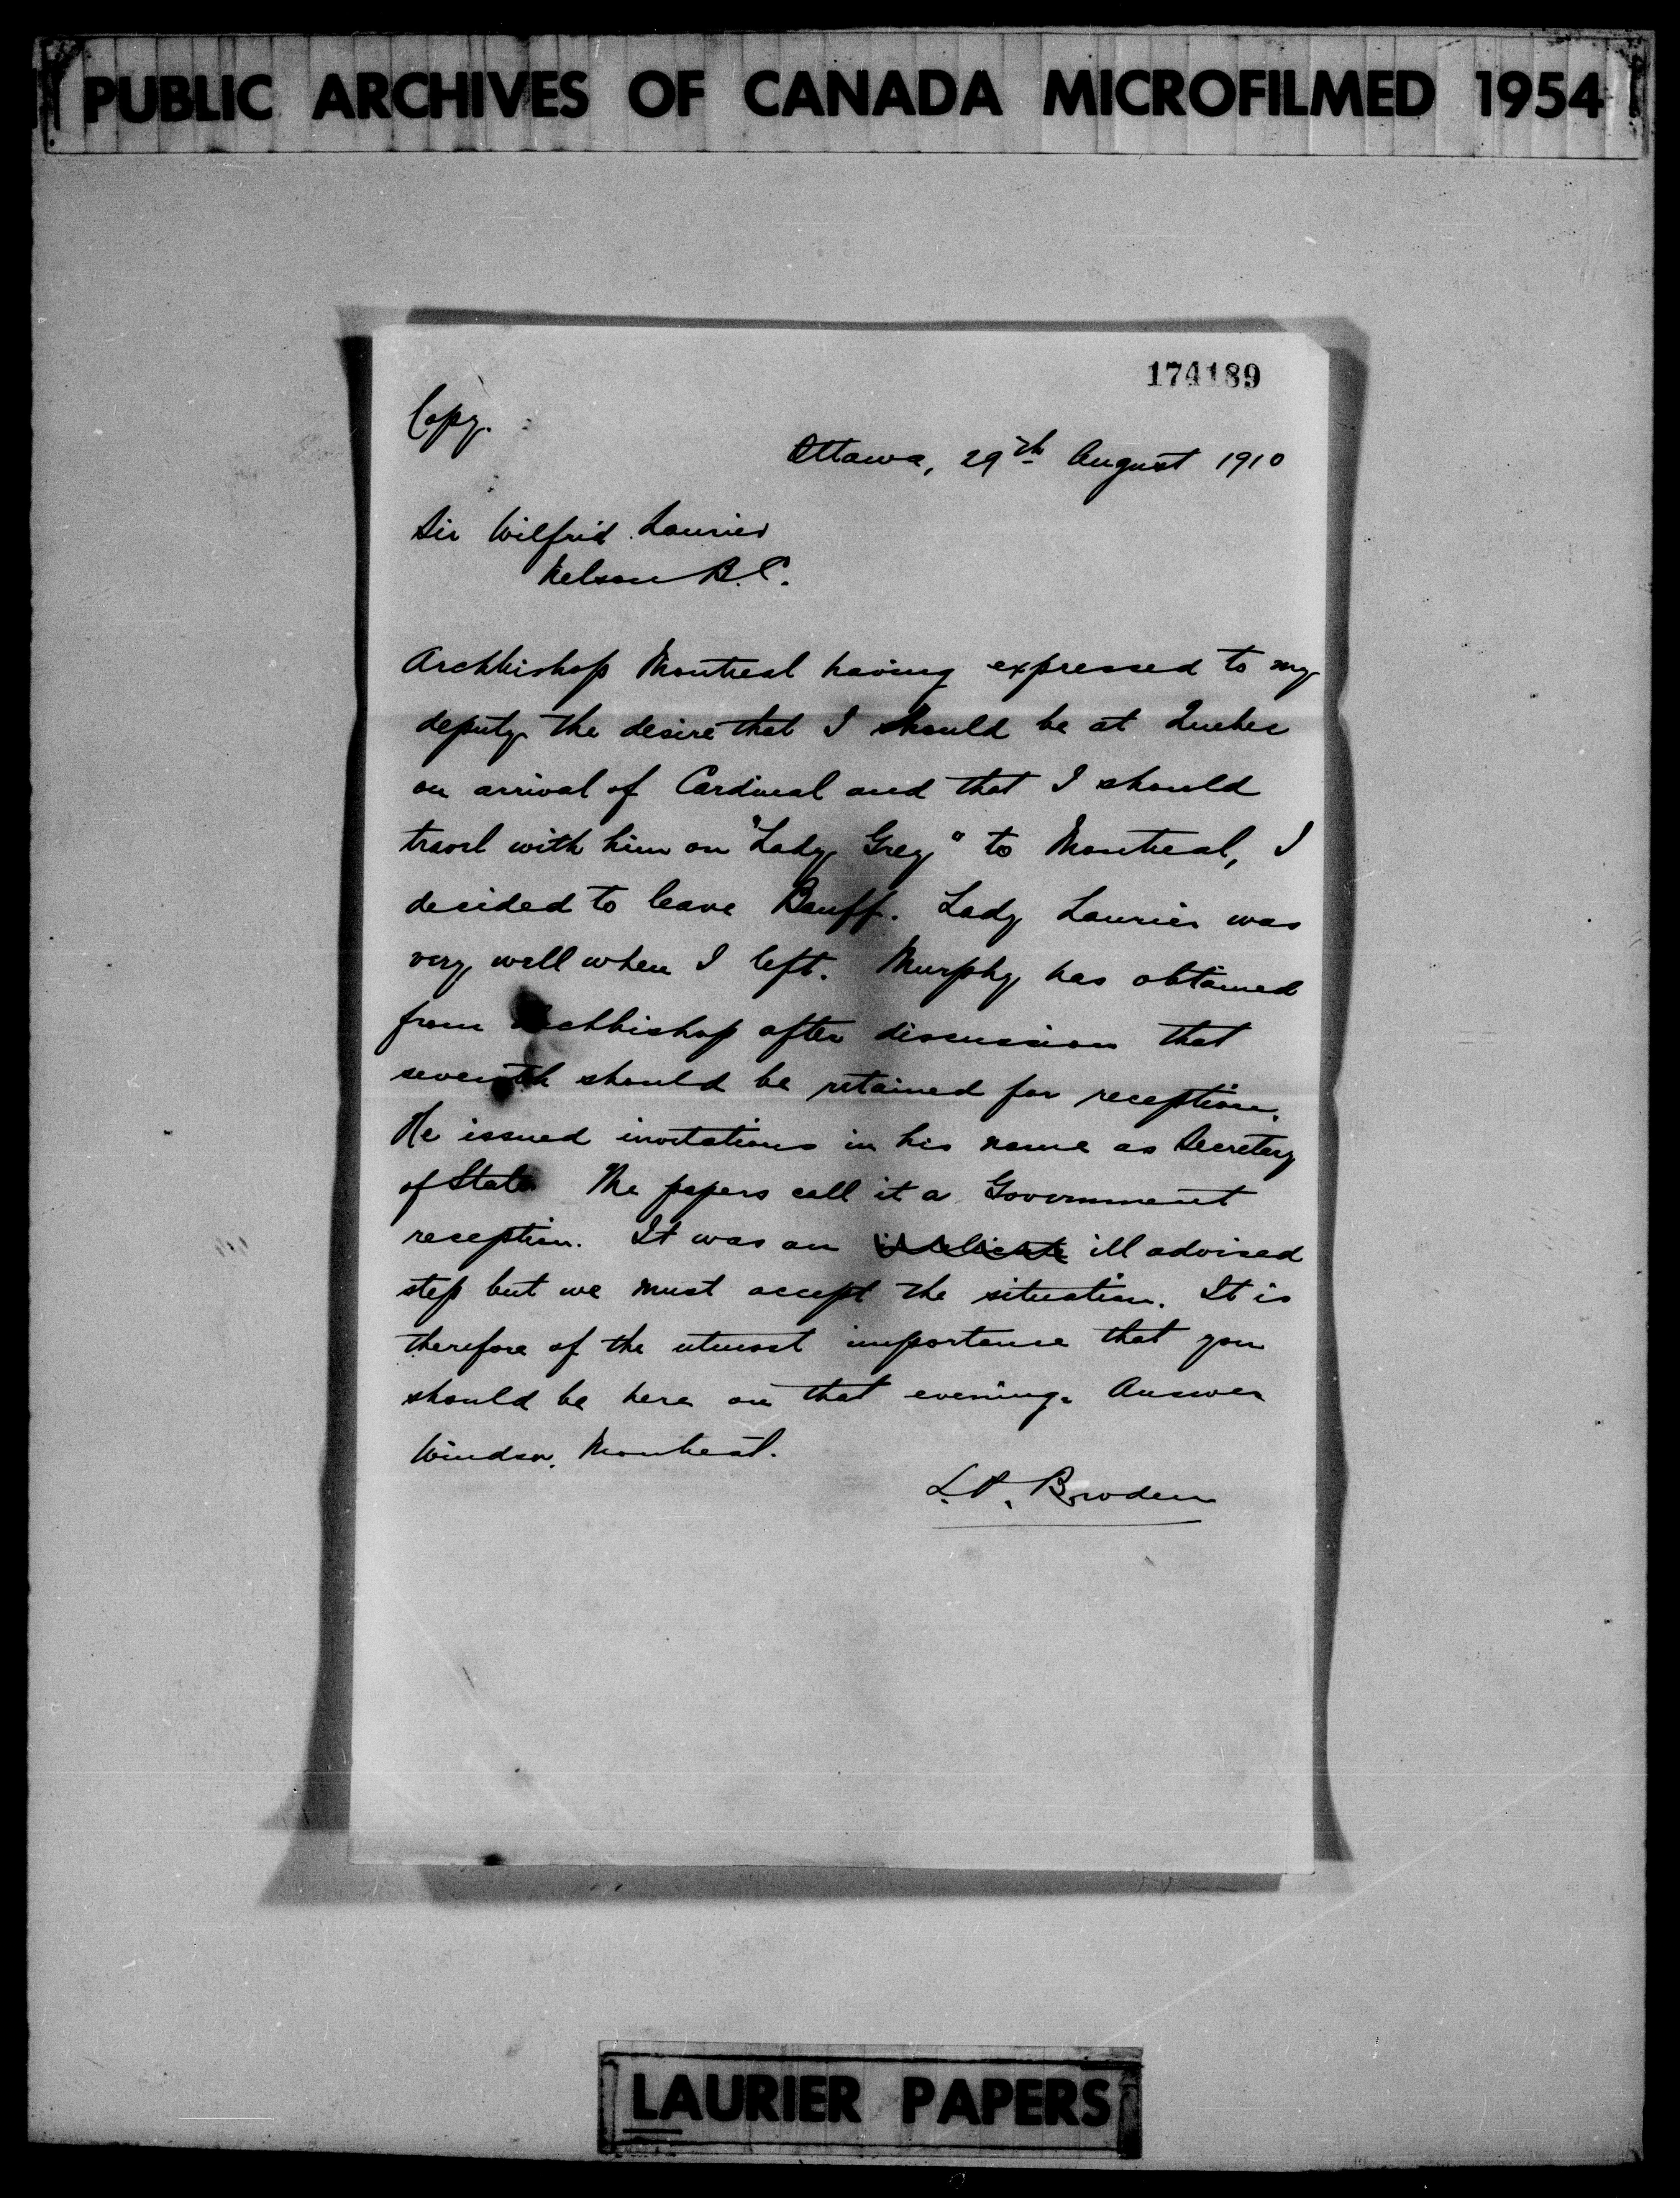 PUBLIC ARCHIVES OF CANADA MICROFILMED 1954
174189
Copy.
Ottawa, 29th August 1910
Sir Wilfrid Laurier
Nelson B.C.
Archbishop Montreal having expressed to my
deputy the desire that I should be at Quebec
on arrival of Cardinal and that I should
travel with him on "Lady Grey" to Montreal, I
decided to leave Banff. Lady Laurier was
very well when I left. Murphy has obtained
from Archbishop after discussion that
seventh should be retained for reception.
He issued invitations in his name as Secretary
of State. The papers call it a Government
reception. It was an indelicate ill advised
step but we must accept the situation. It is
therefore of the utmost importance that you
should be here on that evening. Answer
Windsor, Montreal.
L.P. Brodeur
LAURIER PAPERS